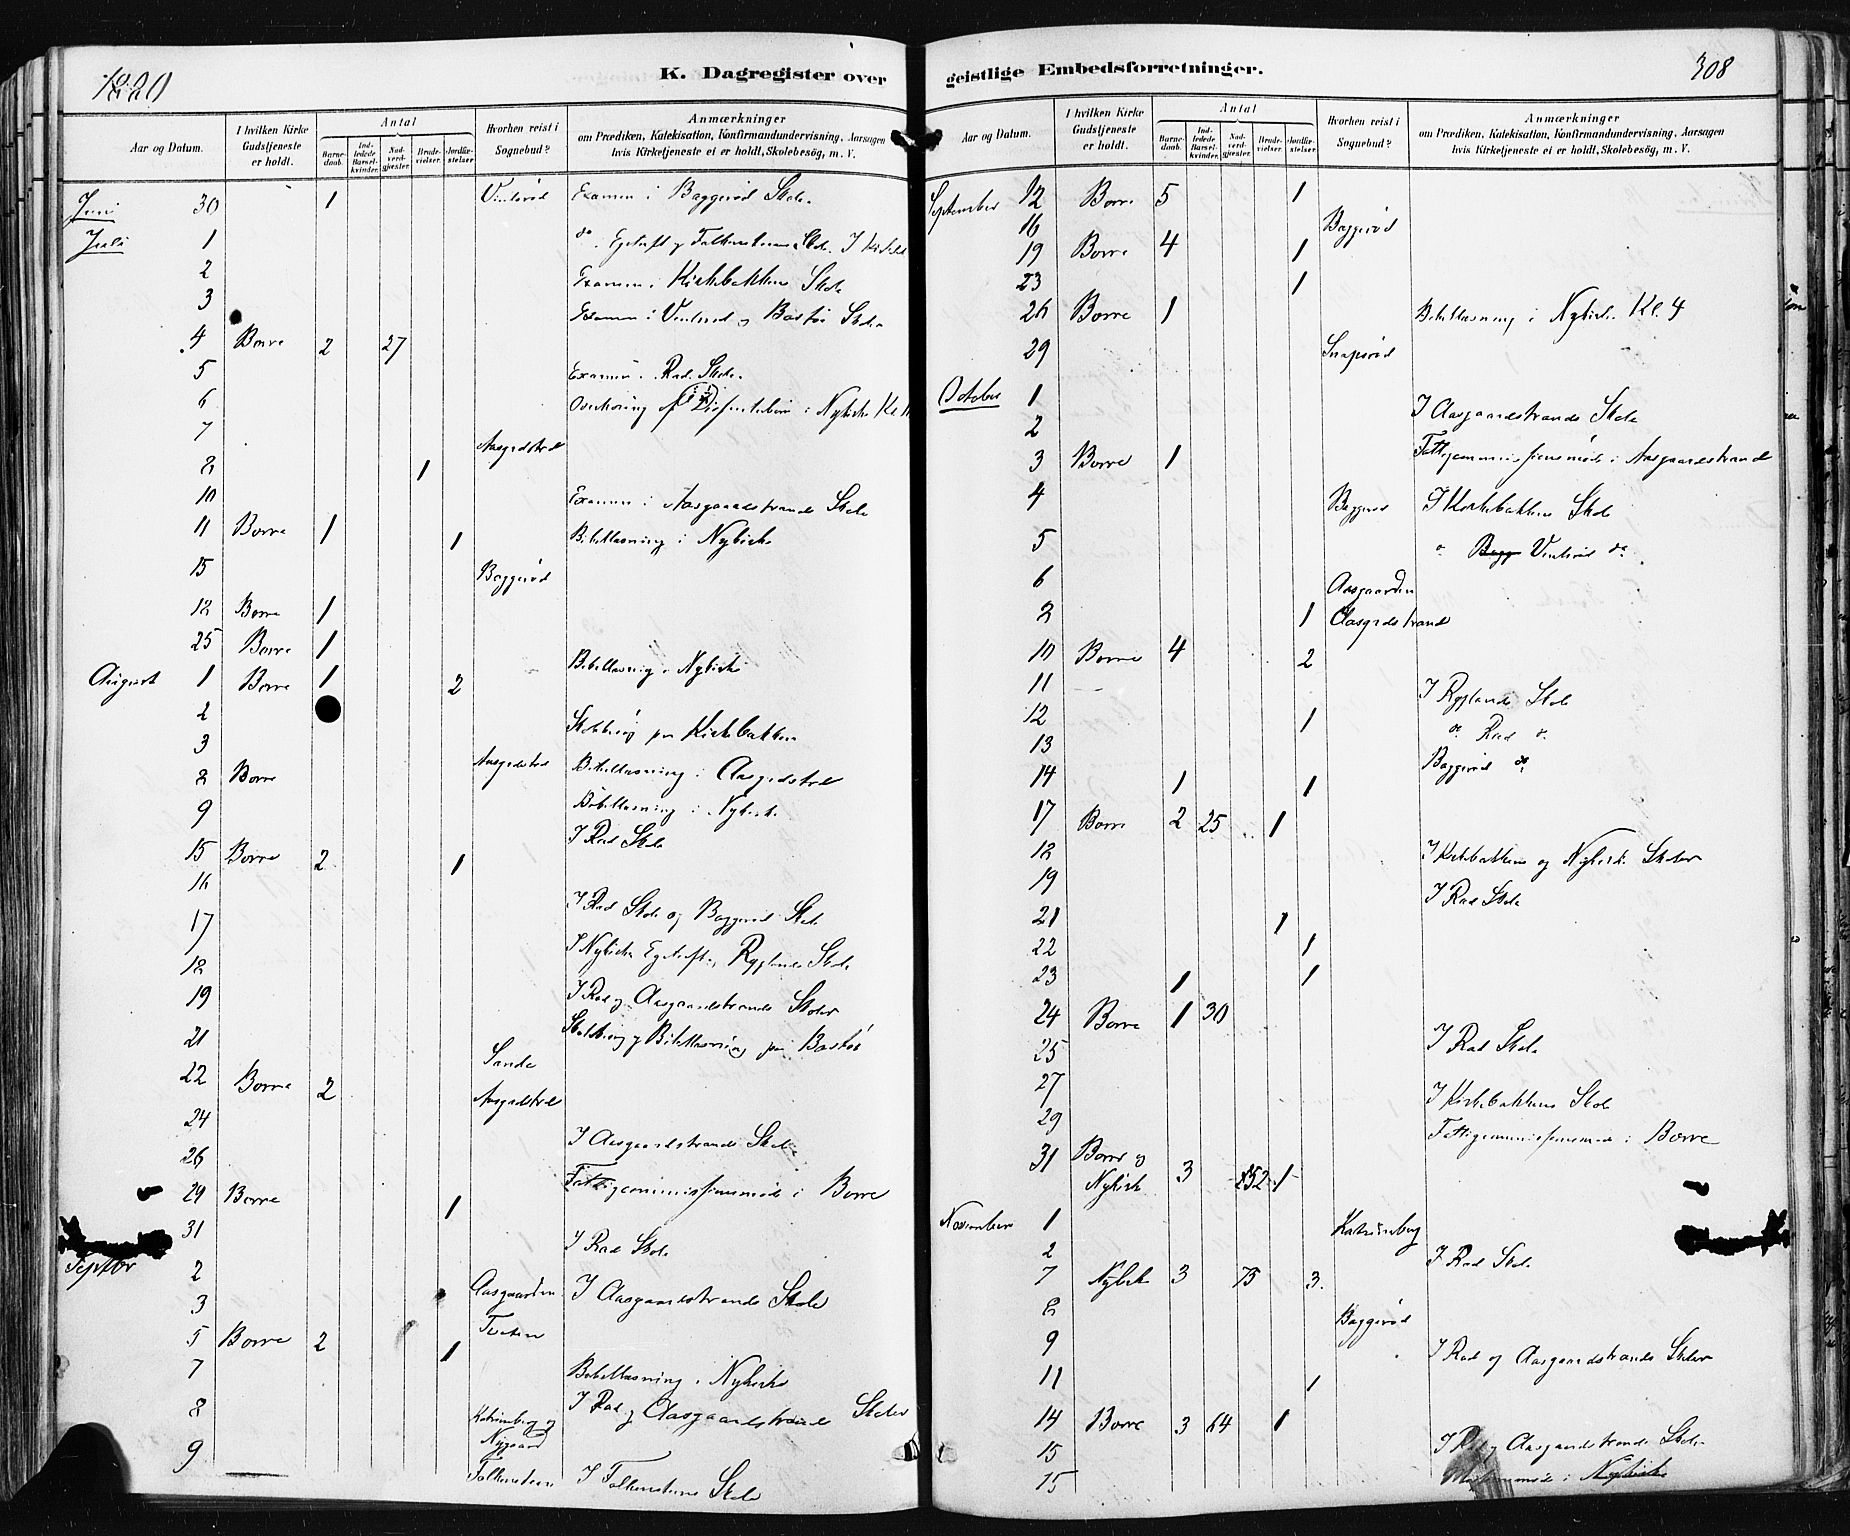 1880
K. Dagregister over
Aar og Datum.
I hvilken Kirke Gudstjeneste er holdt.
Antal
Barnedaab.
Indledede Barselkvinder.
Nadverdgjester.
Brudevielser.
Jordfæstelser.
Hvorhen reist i Sognebud?
Anmærkninger
om Prædiken, Katekisation, Konfirmandundervisning, Aarsagen
hvis Kirketjeneste ei er holdt, Skolebesög, m. V.
Juni 30 1 Vinterød Examen i Baggerød Skole
Juli 1 do. Egetuft og Falkensteens Skole.
2 Examen i Kirkebakkens Skole
3 Examen i Vinterød og Bastø Skole
4 Borre 2 27
5 Examen i Rad Skole
6 Overhøring af i Nykirke Kl.
7 Aasgrdstrd
8 1
10 Examen i Aasgaardstrands Skole
11 Borre 1 1 Bibellæsning i Nykirke
15 Baggerød
18 Borre 1
25 Borre 1
August 1 Borre 1 2 Bibellæsning i Nykirke
2
3 paa Kirkebakken
8 Borre Aasgrdstrd Bibellæsning i Aasgrdstrd
9 Bibellæsning i Nykirke
15 Borre 2 1 I Rad Skole
16
17 I Rad Skole og Baggerød Skole
18 I Nykirke Egetuft og Ryglands Skole
19 I Rad og Aasgaardstrands Skoler
21 og Bibellæsning paa Bastø
22 Borre 2 Sande
24 Aasgrdstrd
26 I Aasgaardstrands Skole
29 Borre 1 Fattigcommissionsmøde i Borre
31
Septbr 2 I Rad Skole
3 Aasgaarden I Aasgaardstrands Skole
5 Borre 2 1
7 Bibellæsning i Nykirke
8 Katrineberg og Nygaard I Rad og Aasgaardstrands Skoler
9 Falkensteen I Falkensteens Skole
geistlige Embedsforretninger.
308
Aar og Datum.
I hvilken Kirke Gudstjeneste er holdt.
Antal
Barnedaab.
Indledede Barselkvinder.
Nadverdgjester.
Brudevielser.
Jordfæstelser.
Hvorhen reist i Sognebud?
Anmærkninger
om Prædiken, Katekisation, Konfirmandundervisning, Aarsagen
hvis Kirketjeneste ei er holdt, Skolebesög, m. V.
September 12 Borre 5 1
16 Baggerød
19 Borre 4 1
23 1
26 Borre 1 Bibellæsning i Nykirke Kl. 4
29 Snapsrød
October 1 I Aasgaardstrands Skole
2
3 Borre 1 Fattigcommissionsmøde i Aasgaardstrand
4 Baggerød I Kirkebakkens Skole
5 Vinterød do
6 Aasgaarden
8 1 Aasgrdstrand
10 Borre 4 2
11 I Ryglands Skole
12 1 do Rad do
13 Baggerød do
14 1 1
17 Borre 2 25 1
18 I Kirkebakkens og Nykirke Skoler
19 I Rad Skole
21 1
22 1
23 1 1
24 Borre 1 30
25 I Rad Skole
27 I Kirkebakkens Skole
29 Fattigcommissionsmøde i Borre
31 Borre og Nykirke 3 1
November 1 Katrineberg
2 I Rad Skole
7 Nykirke 3 75 3
8 Baggerød
9 I Rad og Aasgaardstrands Skoler
11 1
14 Borre 3 64 1
15 I Rad og Aasgaardstrands Skole
15 i Nykirke